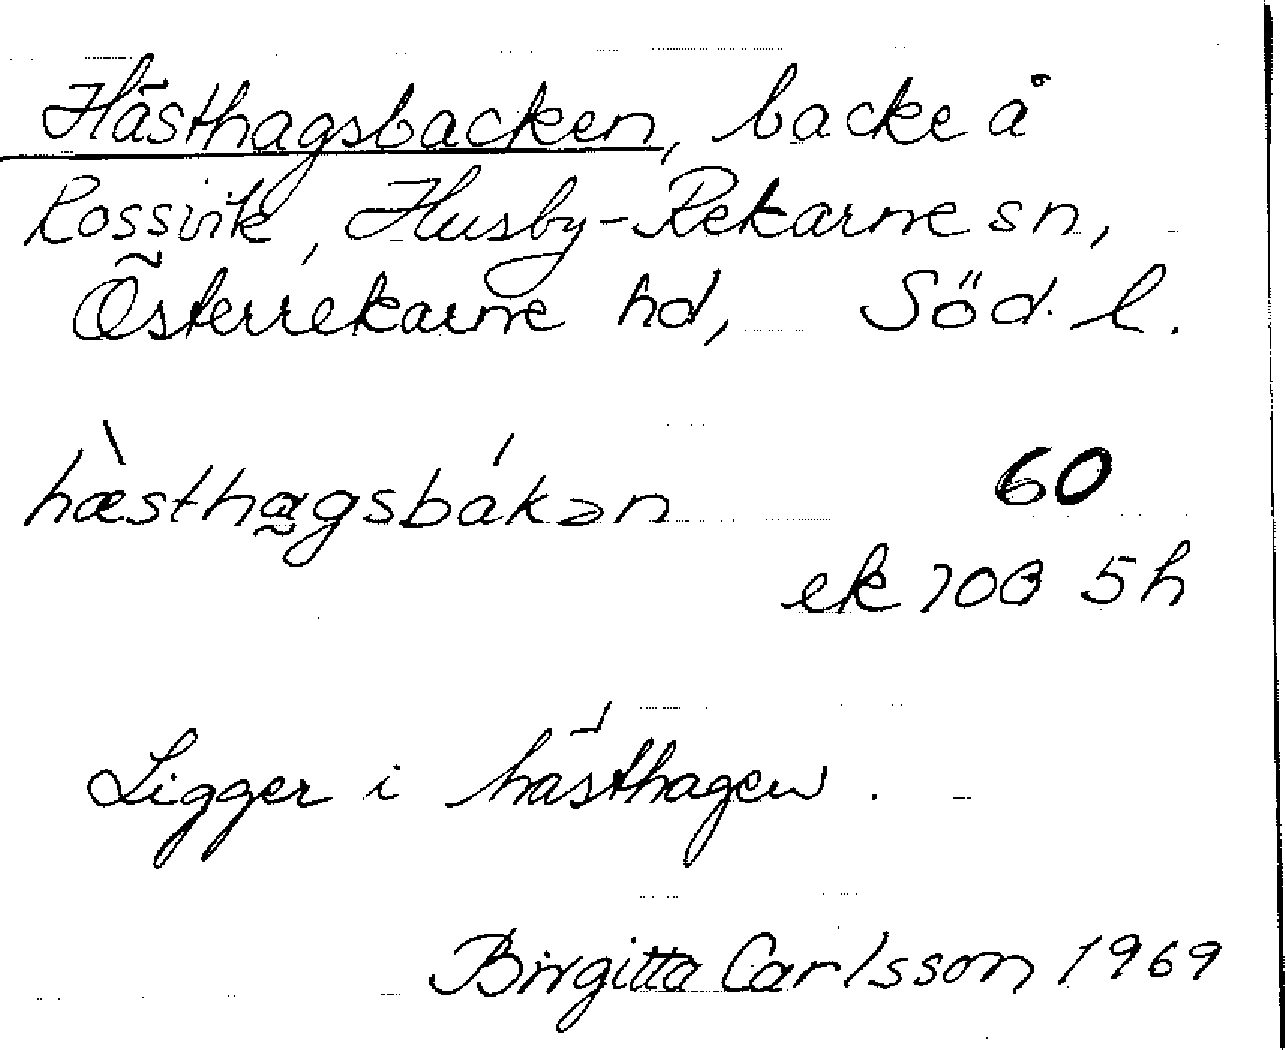 Hästhagsbacken, backe å
Rossvik, Husby-Rekarne sn,
Österrekarne hd, Söd. l.
hæ̀sthagsbákən
60
ek 10G 5h
Ligger i hästhagen.
Birgitta Carlsson 1969